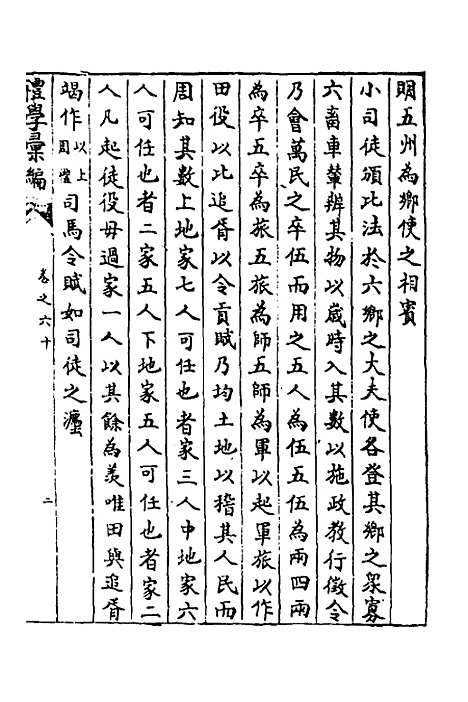 賙五州為鄉使之相賓
小司徒頒比法於六鄉之大夫使各登其鄉之衆寡
六畜車輦辨其物以歲時入其數以施政教行徵令
乃會萬民之卒伍而用之五人為伍五伍為兩四兩
為卒五卒為旅五旅為師五師為軍以起軍旅以作
田役以比追胥以令貢賦乃均土地以稽其人民而
周知其數上地家七人可任也者家三人中地家六
人可任也者二家五人下地家五人可任也者家二
人凡起徒役毋過家一人以其餘為羨唯田與追胥
竭作以上周禮司馬令賦如司徒之灋
禮學彙編 卷之六十 二